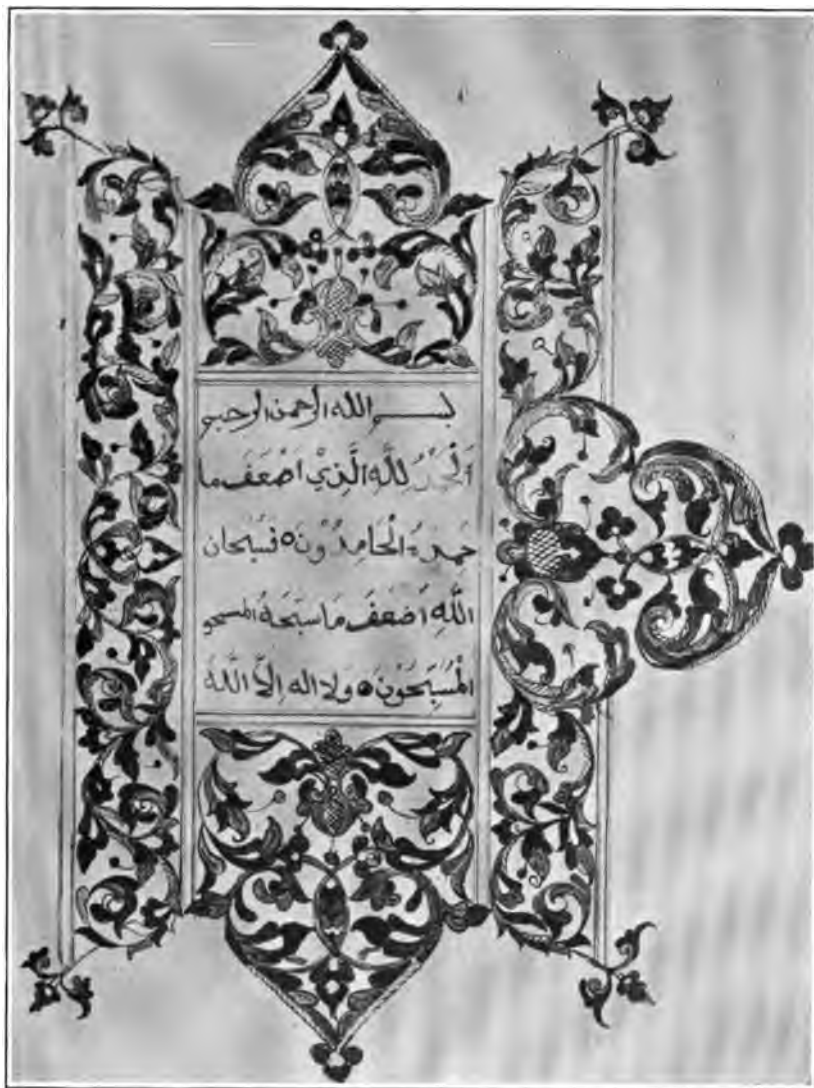 بسم الله الرحمن الرحيم
اَلْحَمْدُ لِلَّهِ الَّذِيْ اَضْعَفَ ما
حمده الْحَامِدُوْنَ ه فَسُبْحَان
اللَّهِ اَضعَفَ مَا سبَّحَهُ المسحو
الْمُسَبِّحُوْنَ ه وَلا اله اِلاَّ اللَّهُ